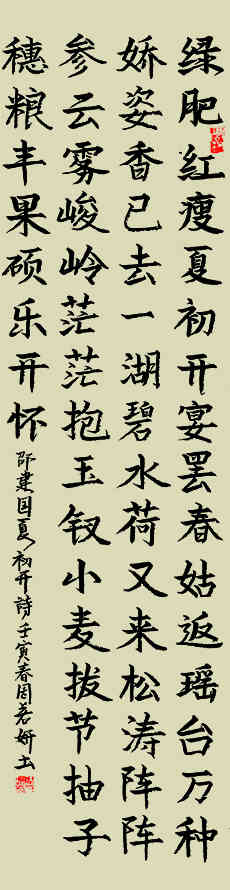 绿肥红瘦夏初开宴罢春姑返瑶台万种
娇姿香已去一湖碧水荷又来松涛阵阵
参云雾峻岭茫茫抱玉钗小麦拔节抽子
穗粮丰果硕乐开怀
邵建国夏初开詩壬寅春周妍书